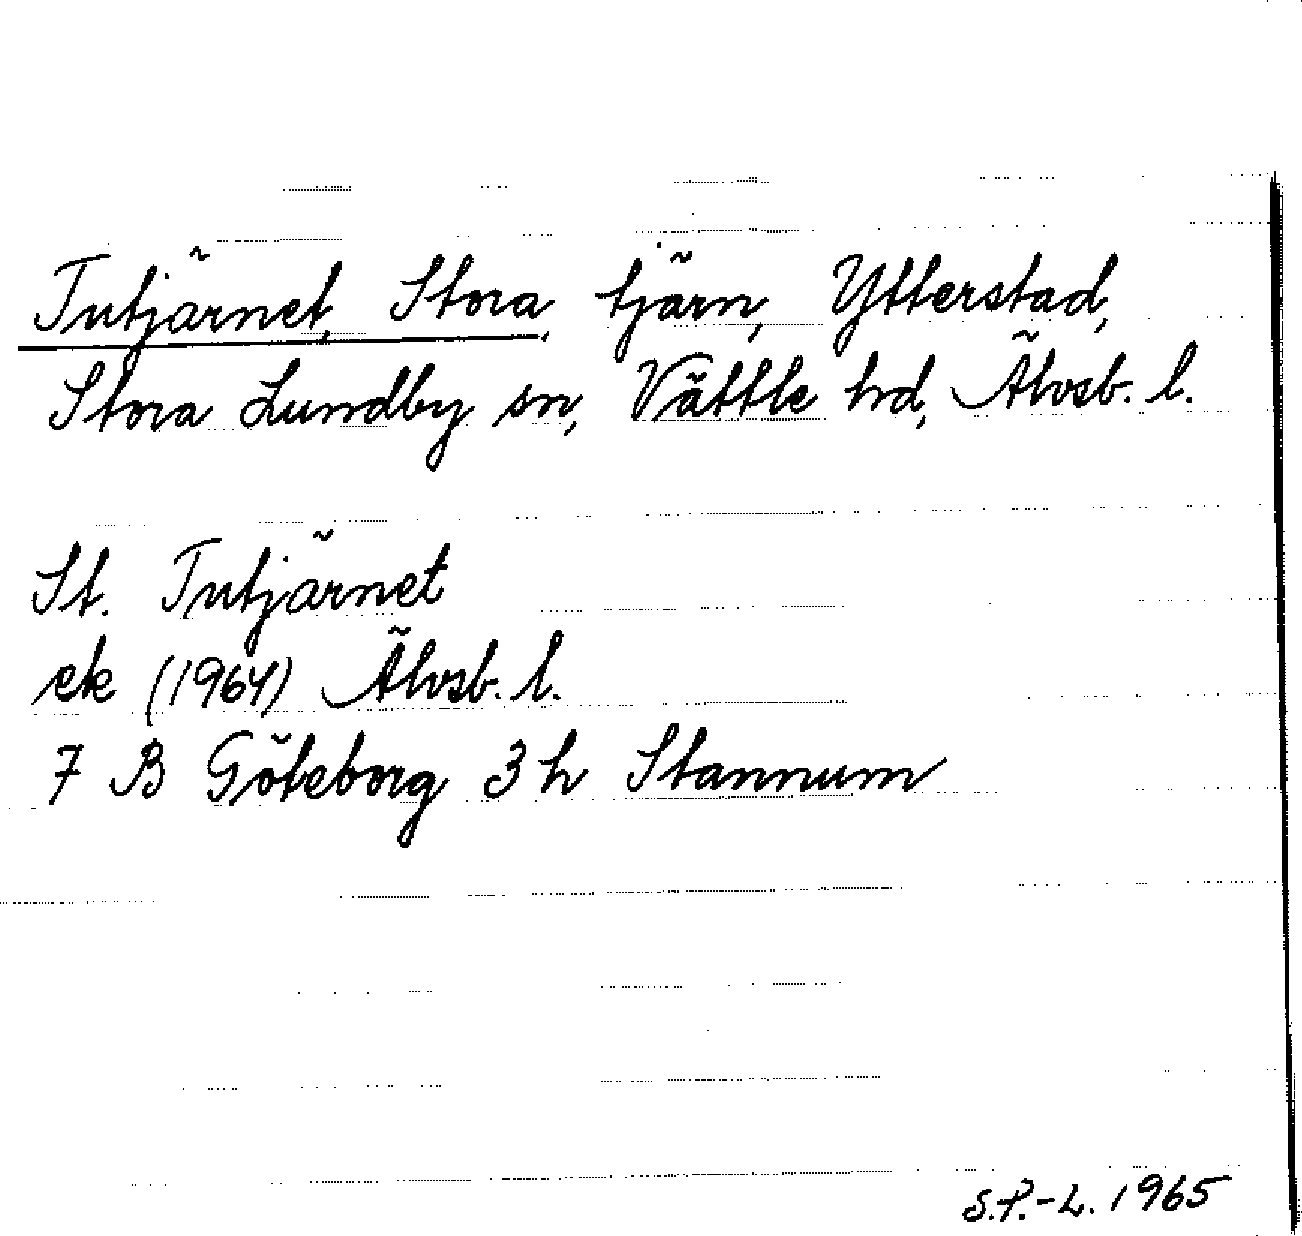 Tutjärnet, Stora, tjärn, Ytterstad,
Stora Lundby sn, Vättle hd, Älvsb. l.
St. Tutjärnet
ek (1964) Älvsb. l.
7 B Göteborg 3 h Stannum
S.P.-L. 1965